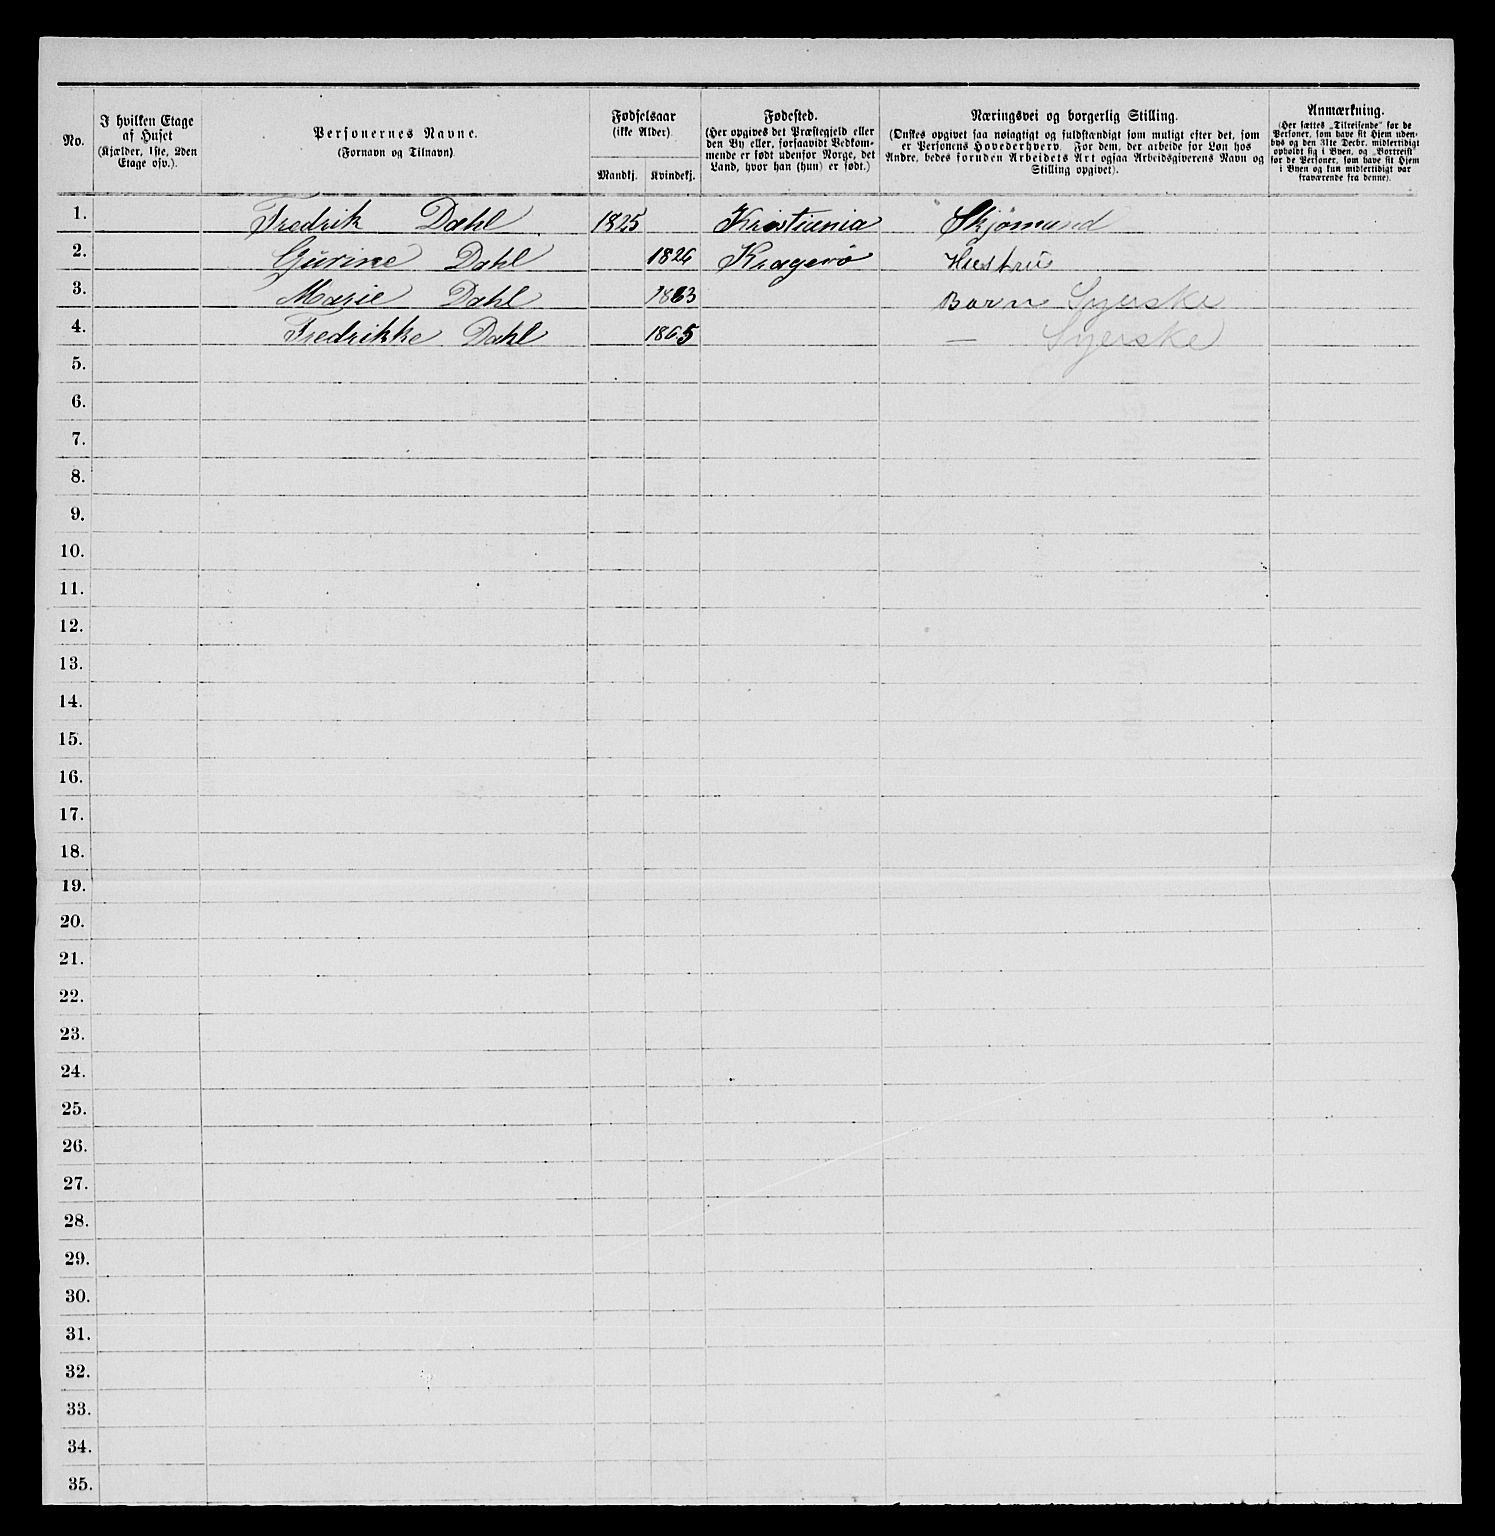 No.
I hvilken Etage
af Huset
(Kjælder, 1ste, 2den
Etage osv.).
Personernes Navne.
(Fornavn og Tilnavn).
Fødselsaar
(ikke Alder).
Mandkj. Kvindekj.
Fødested.
(Her opgives det Præstegjeld eller
den By eller, forsaavidt Vedkom-
mende er født udenfor Norge, det
Land, hvor han (hun) er født.)
Næringsvei og borgerlig Stilling.
(Ønskes opgivet saa nøiagtigt og fuldstændigt som muligt efter det, som
er Personens Hovederhverv. For dem, der arbeide for Løn hos
Andre, bedes foruden Arbeidets Art ogsaa Arbeidsgiverens Navn og
Stilling opgivet).
Anmærkning.
(Her sættes „Tilreisende“ for de
Personer, som have sit Hjem uden-
bys og den 31te Decbr. midlertidigt
opholdt sig i Byen, og „Bortreist“
for de Personer, som have sit Hjem
i Byen og kun midlertidigt var
fraværende fra denne).
1. Fredrik Dahl 1825 Kristiania Skjømand
2. Gurine Dahl 1826 Kragerø Hustru
3. Marie Dahl 1863 Barn Syerske
4. Fredrikke Dahl 1865 — Syerske
5.
6.
7.
8.
9.
10.
11.
12.
13.
14.
15.
16.
17.
18.
19.
20.
21.
22.
23.
24.
25.
26.
27.
28.
29.
30.
31.
32.
33.
34.
35.